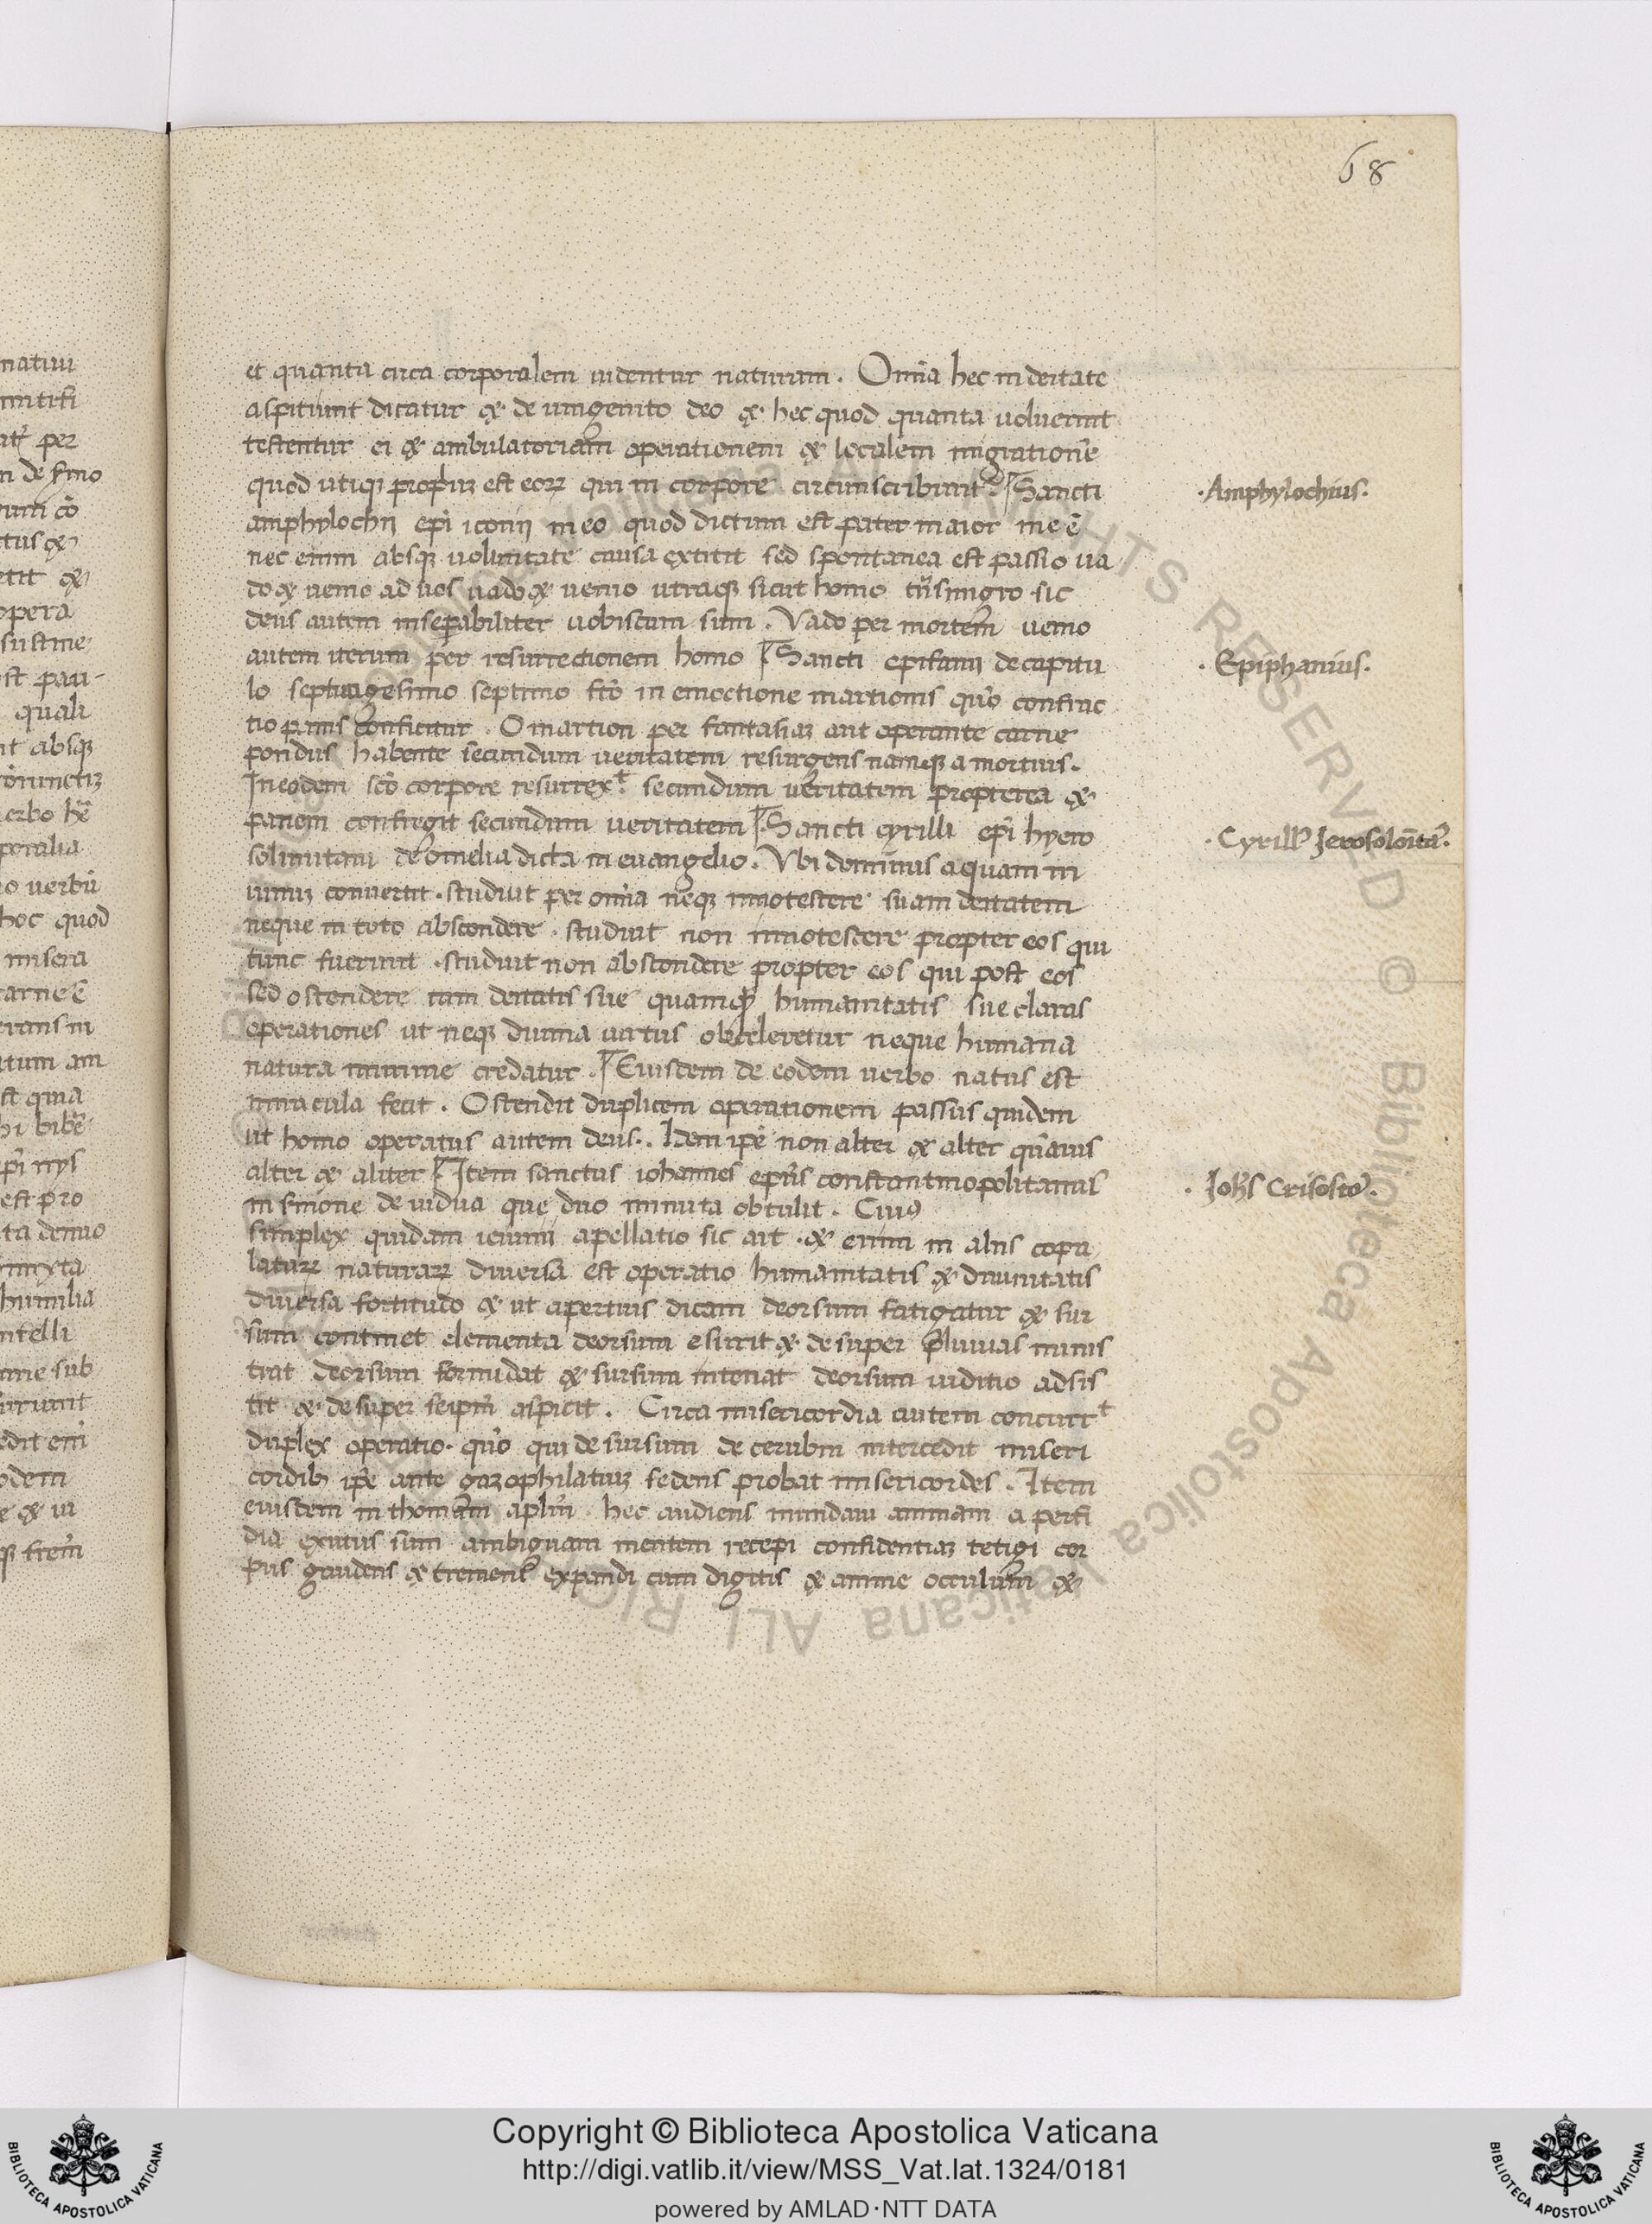 68
et quanta circa corporalem uidentur naturam. Om̄ia hec in deitate
aspitiunt dicatur & de unigenito deo & hec quod quanta uoluerint
testentur ei & ambulatoriam operationem & localem migrationē
quod utiqꝫ propiuꝫ est eoꝝ qui in corpore circunscribunt᷑. Sancti
·Amphylochius·
amphylochij ep̄i iconij in eo quod dictum est pater maior me ē
nec enim absqꝫ uoluntate causa extitit sed spontanea est passio ua
do & uenio ad uos uado & uenio utraqꝫ sicut homo trāsmigro sic
deus autem inseparabiliter uobiscum sum. Vado per mortem uenio
autem iterum per resurrectionem homo Sancti epifanij de capitu
·Epiphanius·
lo septuagesimo septimo in emoctione martionis quō confrac
tio panis conficitur. O martion per fantasiaꝫ aut operante carne
pondus habente secundum ueritatem resurgens namqꝫ a mortuis.
In eodem sc̄o corpore resurrexᵗ. secundum ueritatem propterea &
panem confregit secundum ueritatem Sancti cyrilli ep̄i hyero
·Cyrillꝰ Jerosoloītā·
solimitani de omelia dicta in euangelio. Vbi dominus aquam in
uinuꝫ conuertit. studuit per om̄ia neqꝫ innotescere suam deitatem
neque in toto abscondere. studuit non innotescere propter eos qui
tunc fuerunt. studuit non abscondere propter eos qui post eos
sed ostendere tam deitatis sue quamqꝫ humanitatis sue claras
operationes ut neqꝫ diuina uirtus obceleretur neque humana
natura minime credatur. Eiusdem de eodem uerbo natus est
miracula fecit. Ostendit duplicem operationem passus quidem
ut homo operatus autem deus. Idem ip̄e non alter & alter qūauis
alter & aliter Item sanctus iohannes ep̄us constantinopolitanus
· Joħs Crisosto᷑·
in s̄mone de uidua que duo minuta obtulit. Cuiꝰ
simplex quidam ieiunii apellatio sic ait. & enim in alns copu
latuꝝ naturaꝝ diuersa est operatio humanitatis & diuinitatis
diuersa fortitudo & ut apertius dicam deorsum fatigatur & sur
sum continet elementa deorsum esurit & desuper pluuias minis
trat deorsum formidat & sursum intonat deorsum uiditio adsis
tit & desuper seip̄m aspicit. Circa misericordia autem concurrᵗ
duplex operatio. quō qui desursum de cerubin intercedit miseri
cordibꝫ ip̄e ante gazophilatiuꝫ sedens probat misericordes. Item
eiusdem in thomam apl̄m. hec audiens mundaui animam a perfi
dia exutus sum ambiguam mentem recepi confidentiaꝫ tetigi cor
pus gaudens & tremens expandi cum digitis & anime occulum &
Copyright © Biblioteca Apostolica Vaticana
http://digi.vatlib.it/view/MSS_Vat.lat.1324/0181
powered by AMLAD·NTT DATA
BIBLIOTECA APOSTOLICA VATICANA
BIBLIOTECA APOSTOLICA VATICANA